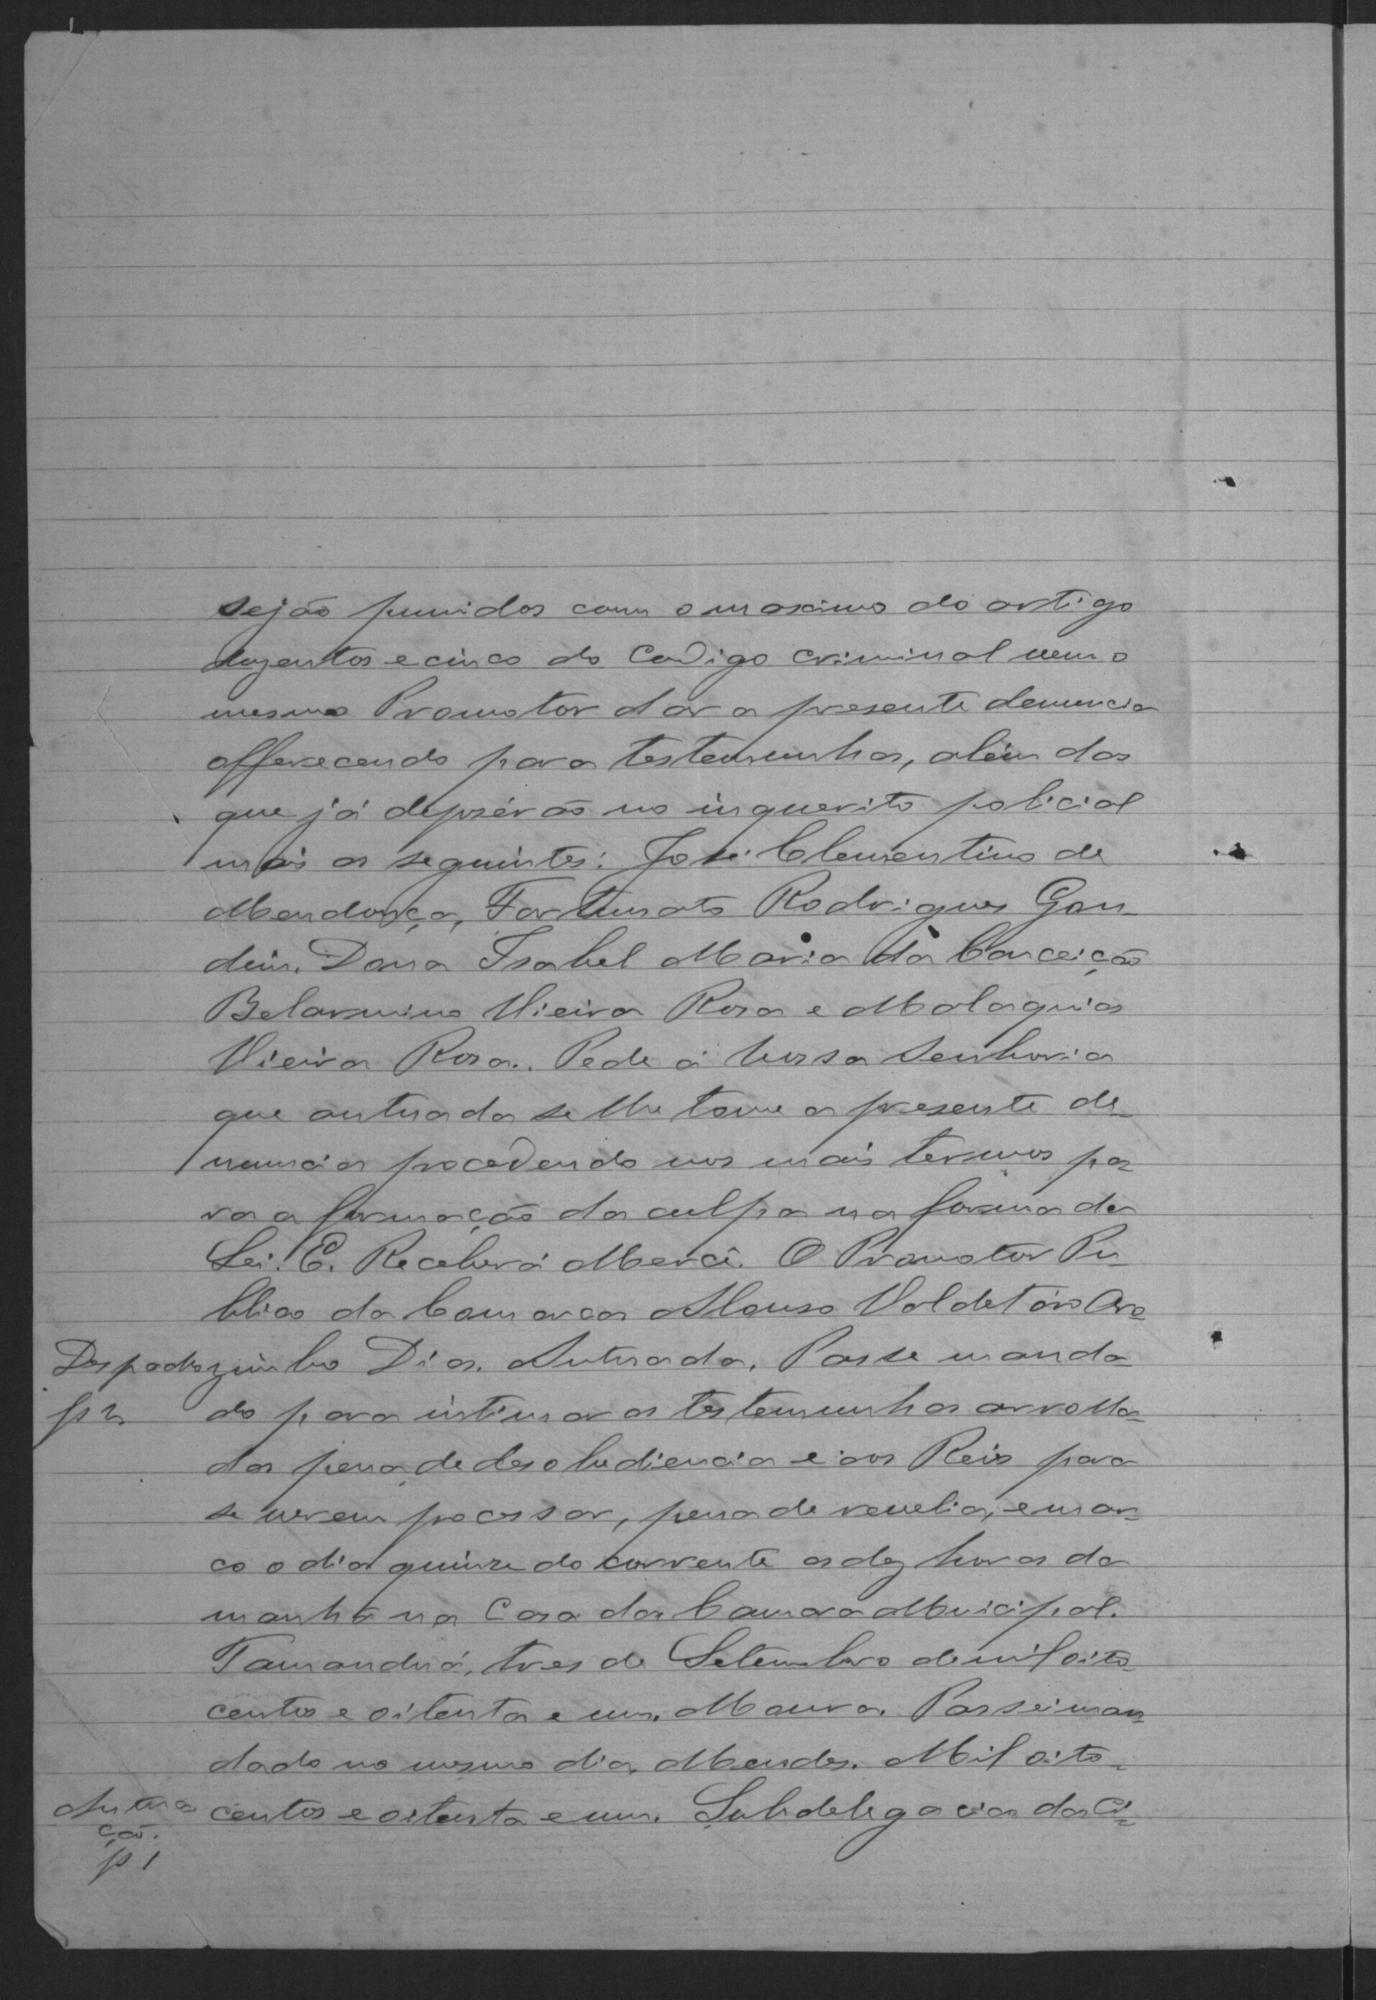 sejão punidos com o maximo do artigo
duzentos e cinco do Codigo criminal vem o
mesmo Promotor dar a presente denuncia
offerecendo para testemunhas, além das
que já depoérão no inquerito policial
mais as seguintes: José Clementino de
Mendonça, Fortunato Rodrigues Gon-
dim, Dona Isabel Maria da Conceição
Belarmino Vieira Rosa e Malaquias
Vieira Rosa. Pede á Vossa Senhoria
que autuada se lhe tome a presente de-
nuncia procedendo nos mais termos pa-
ra a formação da culpa na forma da
Lei. E. Receberá Mercê. O Promotor Pu-
blico da Comarca Afonso Valdetáro
Despacho zimbo Dias. Autuada, Passe manda-
p 2 do para intimar as testemunhas arrolla-
das pena de desobediencia e aos Reis para
se verem pocessar, pena de revelia, e mar-
co o dia quinze do corrente as dez horas da
manhã na Casa da Camara Muicipal.
Tamanduá, tres de Setembro de mil oito
centos e oitenta e um. Moura. Passei man-
dado no mesmo dia. Mendes. Mil oito-
Autua centos e oitenta e um. Subdelegacia da Ci-
ção.
p 1